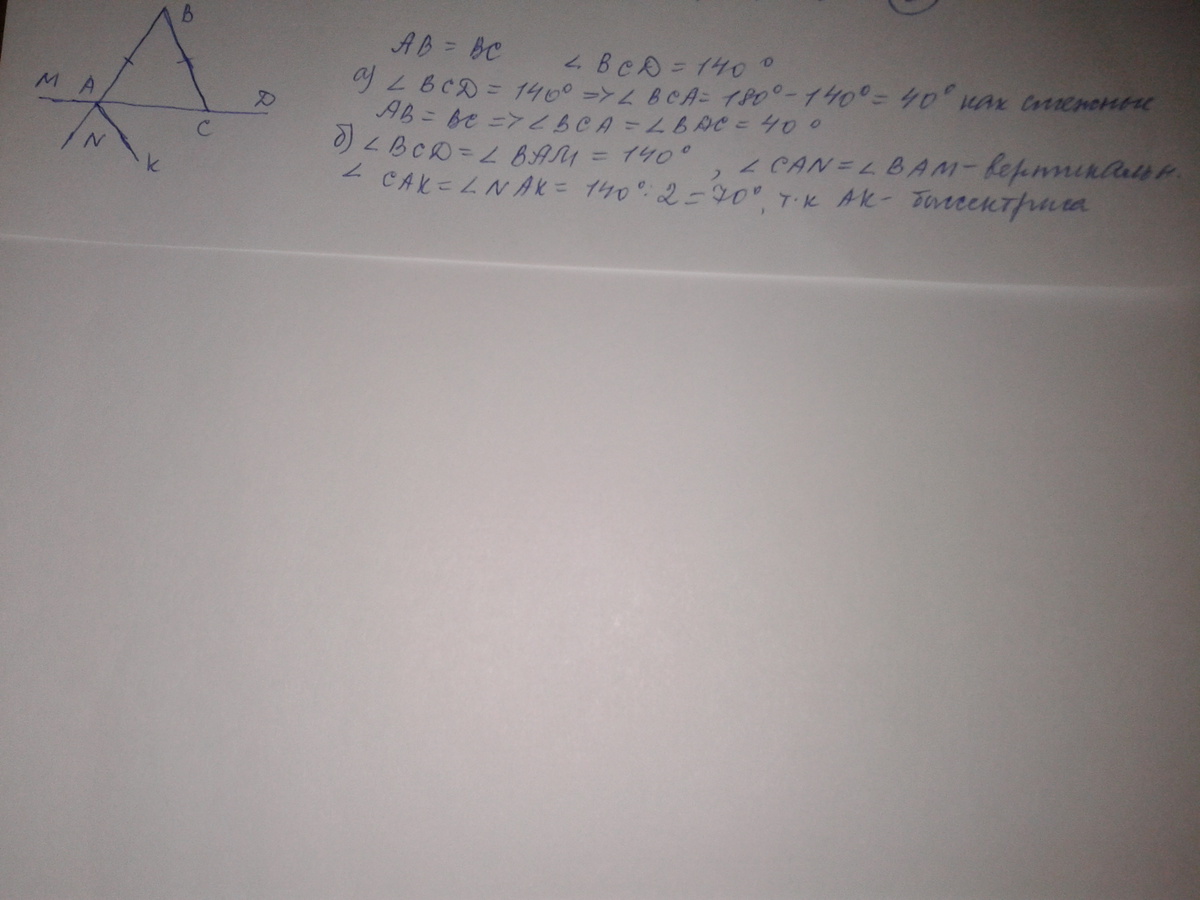 B
M A D
N C
K
AB = BC ∠BCD = 140°
а) ∠BCD = 140° => ∠BCA = 180° - 140° = 40° как смежные
AB = BC => ∠BCA = ∠BAC = 40°
б) ∠BCD = ∠BAM = 140°, ∠CAN = ∠BAM - вертикальн.
∠CAK = ∠NAK = 140° : 2 = 70°, т.к AK - биссектриса